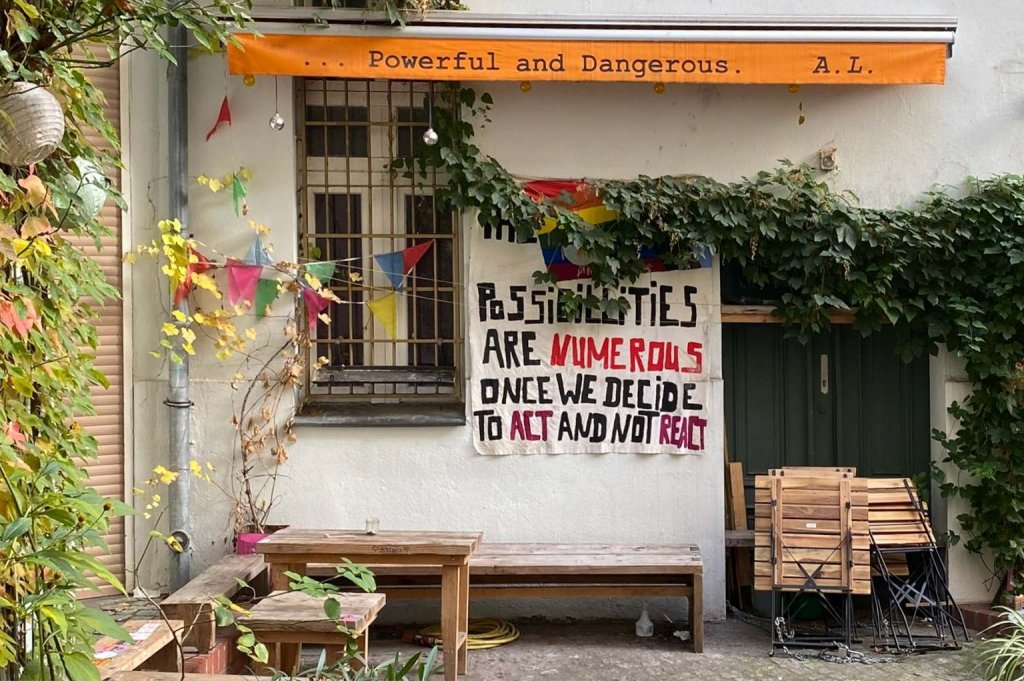 ... Powerful and Dangerous. A.L.
THE
POSSIBILITIES
ARE NUMEROUS
ONCE WE DECIDE
TO ACT AND NOT REACT